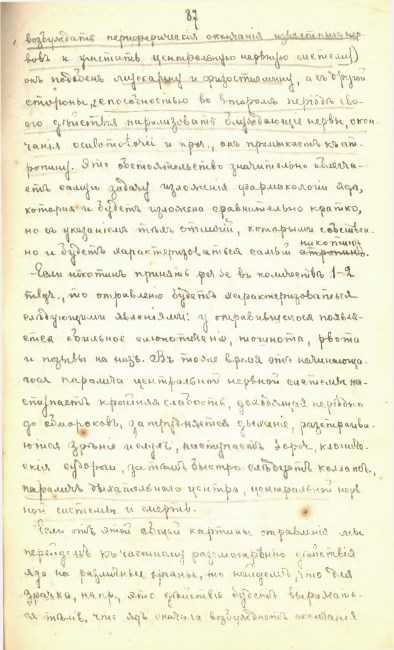 87
возбуждать периферическія окончанія извѣстныхъ нер-
вовъ и угнетать центральную нервную систему)
онъ подобенъ мускарину и физостигмину, а съ другой
стороны, способностью во второмъ періодѣ сво-
его дѣйствія парализовать блуждающіе нервы, окон-
чанія oculomotorii и проч., онъ примыкаетъ къ ат-
ропину. Это обстоятельство значительно облегча-
етъ самую задачу изложенія фармакологіи яда,
которая и будетъ изложена сравнительно кратко,
но съ указаніемъ тѣхъ отличій, которыми собствен-
но и будетъ характеризоваться самый атропинъ.
никотинъ
Если никотинъ принять per se въ количествѣ 1-2
то отравленіе будетъ характеризоваться
слѣдующими явленіями: у отравившагося появля-
ется обильное слюнотеченіе, тошнота, рвота
и позывы на низъ. Въ тоже время отъ начинающа-
гося паралича центральной нервной системы на-
ступаетъ крайняя слабость, доходящая нерѣдко
до обмороковъ, затрудняется дыханіе, разстраива-
ются зрѣніе и слухъ, наступаетъ клониче-
скія судороги, затѣмъ быстро слѣдуетъ коллапсъ,
параличъ дыхательнаго центра, центральной нерв
ной системы и смерть.
Если отъ этой общей картины отравленія мы
перейдемъ къ частному разсмотрѣнію дѣйствія
яда на различные органы, то найдемъ, что для
зрачка, напр., это дѣйствіе будетъ выражать-
ся тѣмъ, что ядъ сначала возбуждаетъ окончанія